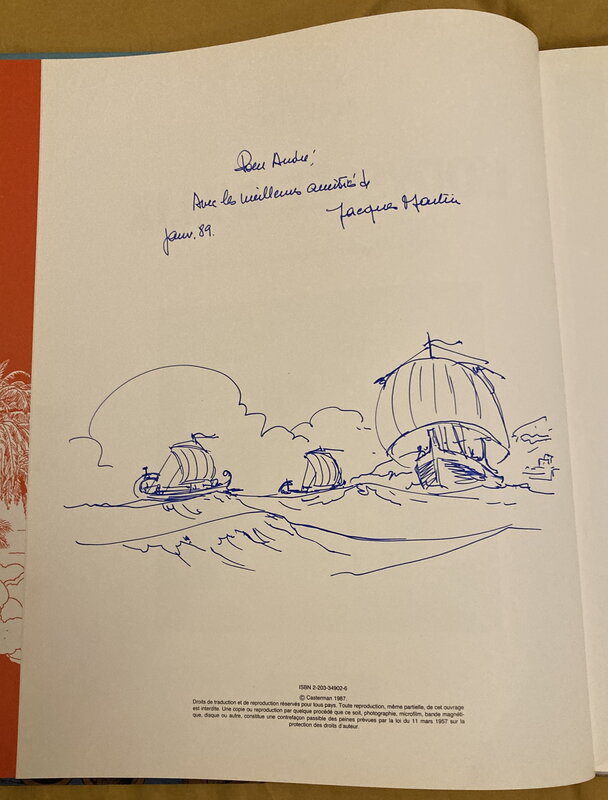 Pour André!
Avec les meilleures amitiés de
Jacques Martin
Janv. 89.
ISBN 2-203-34902-6
© Casterman 1987.
Droits de traduction et de reproduction réservés pour tous pays. Toute reproduction, même partielle, de cet ouvrage
est interdite. Une copie ou reproduction par quelque procédé que ce soit, photographie, microfilm, bande magnéti-
que, disque ou autre, constitue une contrefaçon passible des peines prévues par la loi du 11 mars 1957 sur la
protection des droits d'auteur.